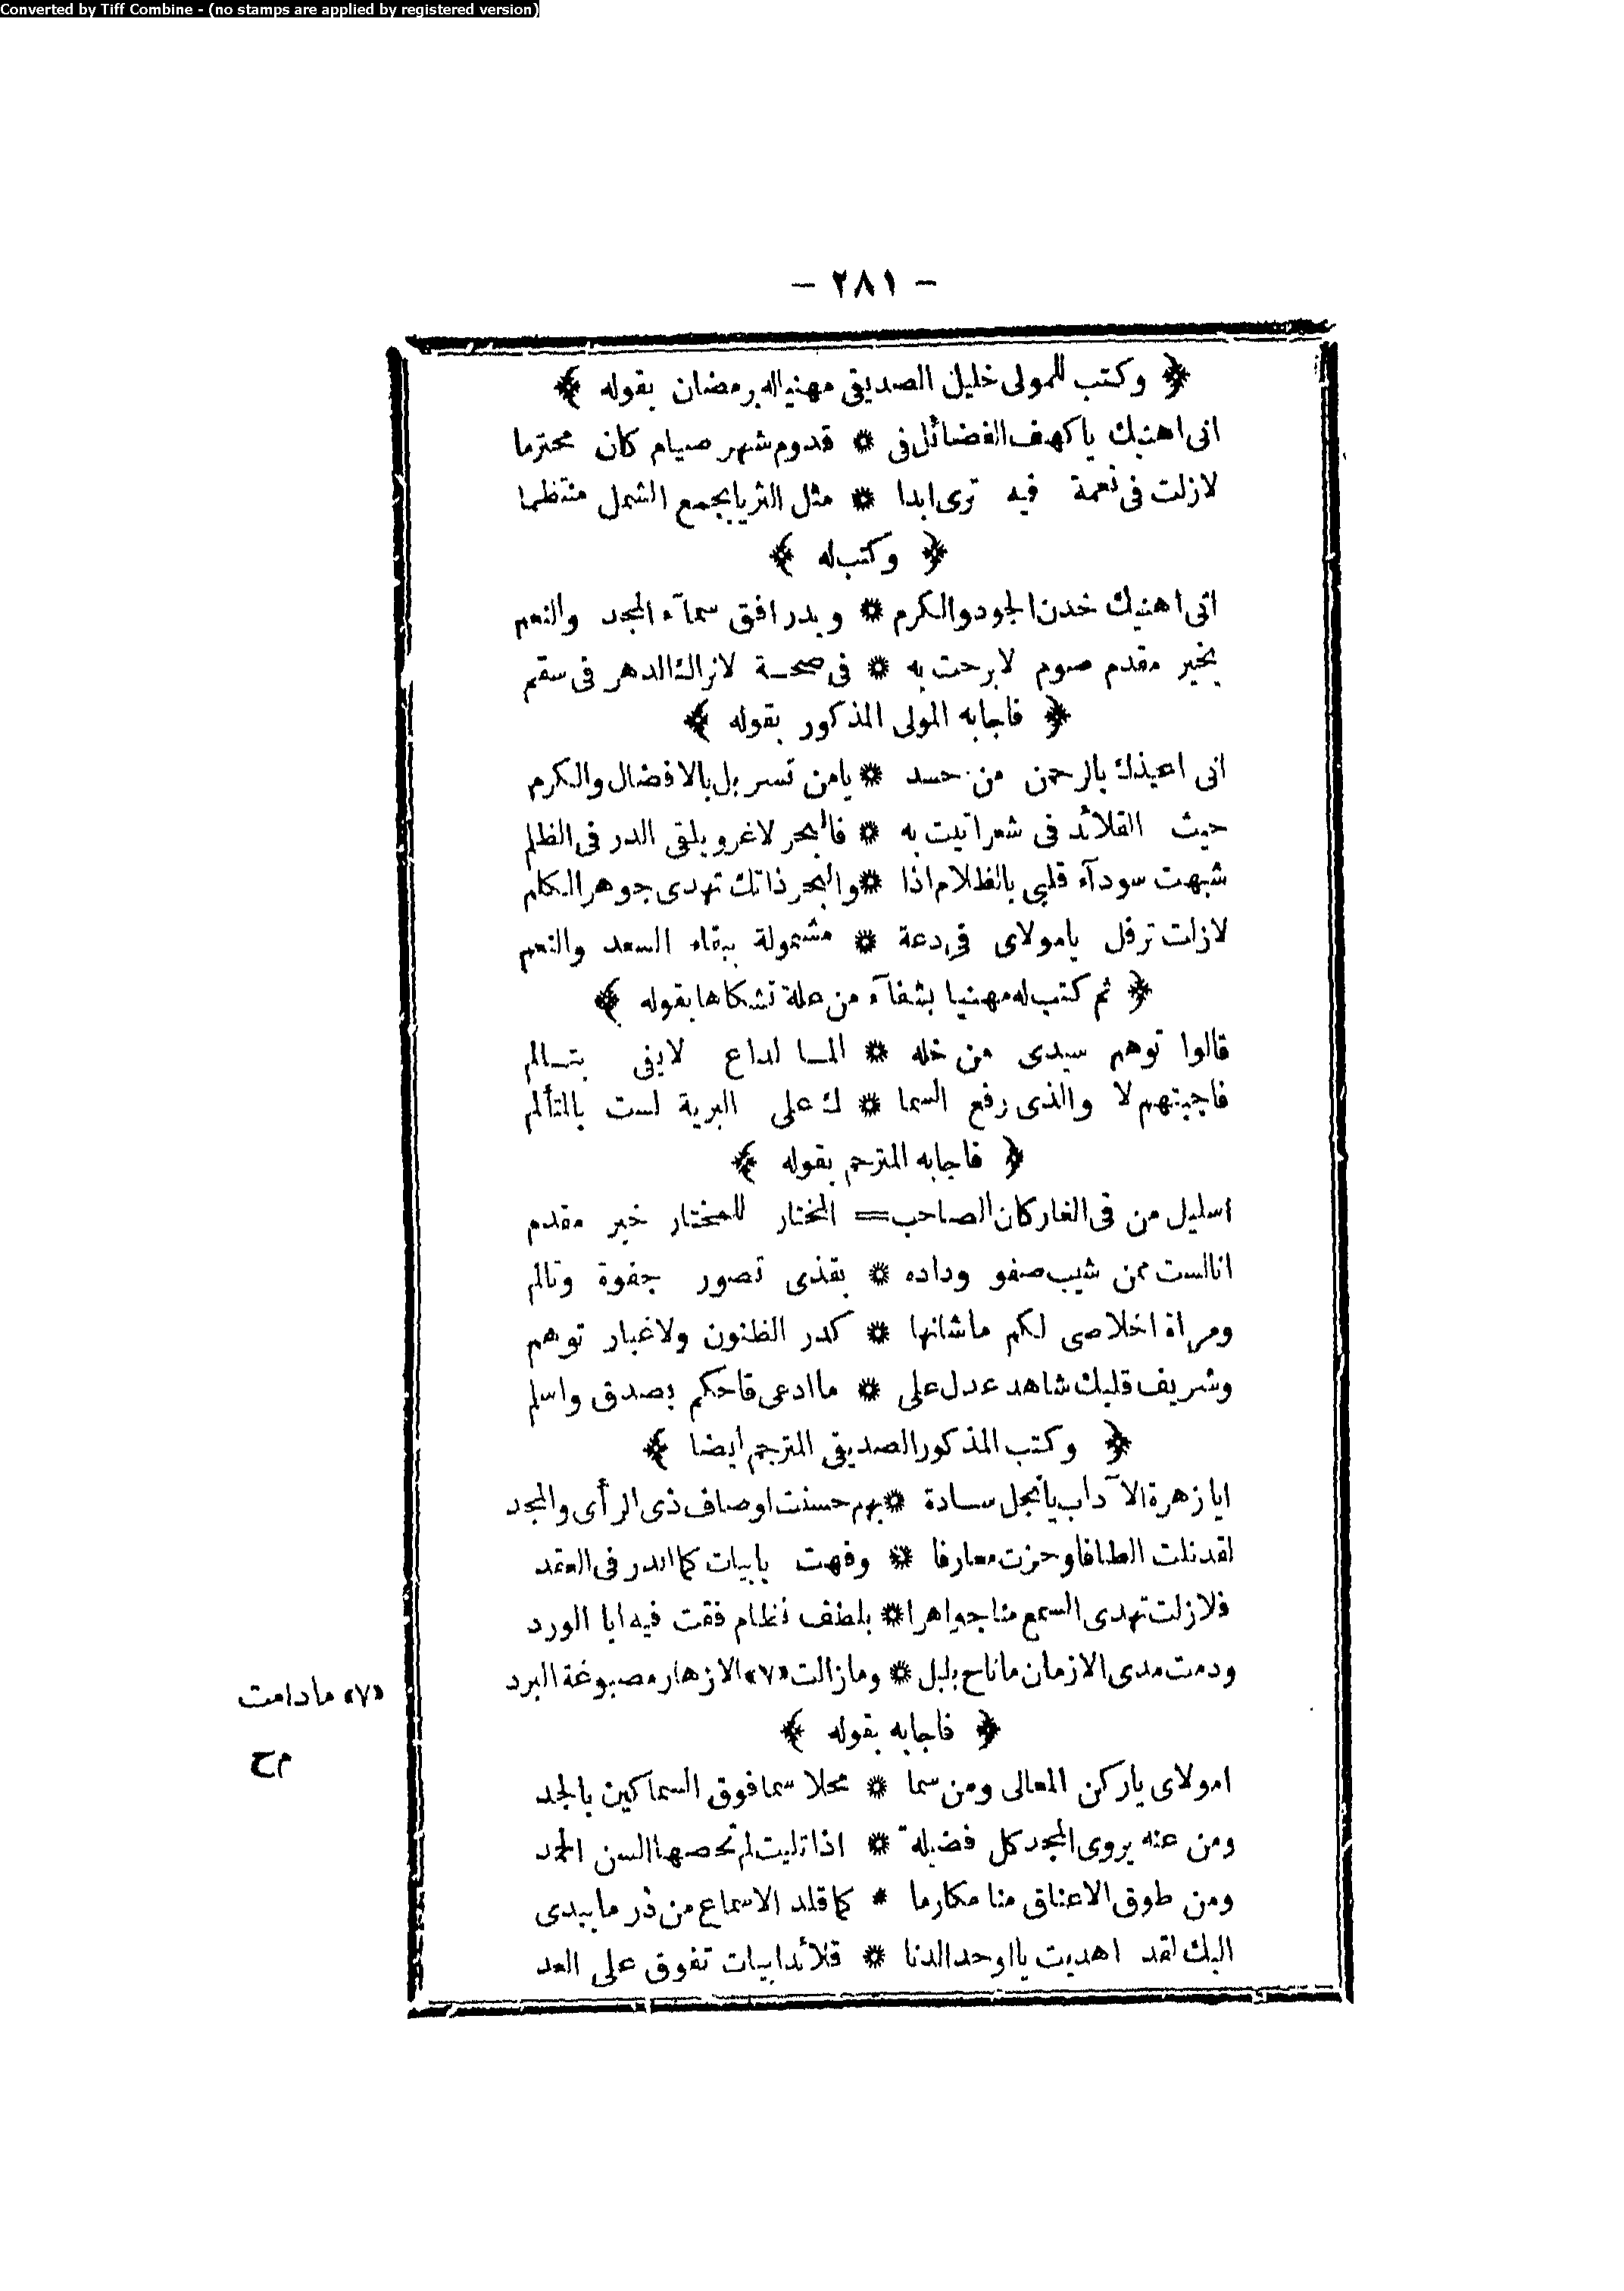 Converted by Tiff Combine - (no stamps are applied by registered version)
— ٢٨١ —
﴿ وكتب للمولى خليل الصديقى مهنيا له برمضان بقوله ﴾
انى اهنيك ياكهف الفضائل فى ❊ قدوم شهر صيام كان محترما
لازلت فى نعمة فيه ترى ابدا ❊ مثل الثريا بجمع الشمل منتظما
﴿ وكتب له ﴾
انى اهنيك خدن الجود والكرم ❊ وبدر افق سمآء المجد والنعم
بخير مقدم صوم لا برحت به ❊ فى صحة لا نزال الدهر فى سقم
﴿ فاجابه المولى المذكور بقوله ﴾
انى اعيذك بالرحمن من حسد ❊ يامن تسربل بالافضال والكرم
حيث القلائد فى شعر اتيت به ❊ فالبحر لاغرو يلقى الدر فى الظلم
شبهت سودآء قلبى بالظلام اذا ❊ والبحر ذاتك تهدى جوهر الكلم
لازلت ترفل يامولاى فى دعة ❊ مشمولة ببقاء السعد والنعم
﴿ ثم كتب له مهنيا بشفآء من علة تشكاها بقوله ﴾
قالوا توهم سيدى من خله ❊ الما لداع لايفى بتالم
فاجبتهم لا والذى رفع السما ❊ ك على البرية لست بالمتألم
﴿ فاجابه المترجم بقوله ﴾
اسليل من فى الغار كان الصاحب = المختار للمختار خير مقدم
انا لست ممن شيب صفو وداده ❊ بقذى تصور جفوة وتالم
ومراة اخلاصى لكم ماشانها ❊ كدر الظنون ولاغبار توهم
وشريف قلبك شاهد عدل على ❊ ما ادعى فاحكم بصدق واسلم
﴿ وكتب المذكور الصديقى المترجم ايضا ﴾
ايا زهرة الآداب يانجل سادة ❊ بهم حسنت اوصاف ذى الرأى والمجد
لقد نلت الطافا وحزت معارفا ❊ وفهت بابيات كما الدر فى العقد
فلازلت تهدى السمع منا جواهرا ❊ بلطف نظام فقت فيه ابا الورد
ودمت مدى الازمان ماناح بلبل ❊ ومازالت «٧» الازهار مصبوغة البرد
«٧» مادامت
م ح
﴿ فاجابه بقوله ﴾
امولاى ياركن المعالى ومن سما ❊ محلا سما فوق السماكين بالجد
ومن عنه يروى المجد كل فضيلة ❊ اذا تليت لم تحصها السن الحمد
ومن طوق الاعناق منا مكارما ❊ كما قلد الاسماع من در مايبدى
اليك لقد اهديت يا اوحد الدنا ❊ قلائد ابيات تفوق على العد